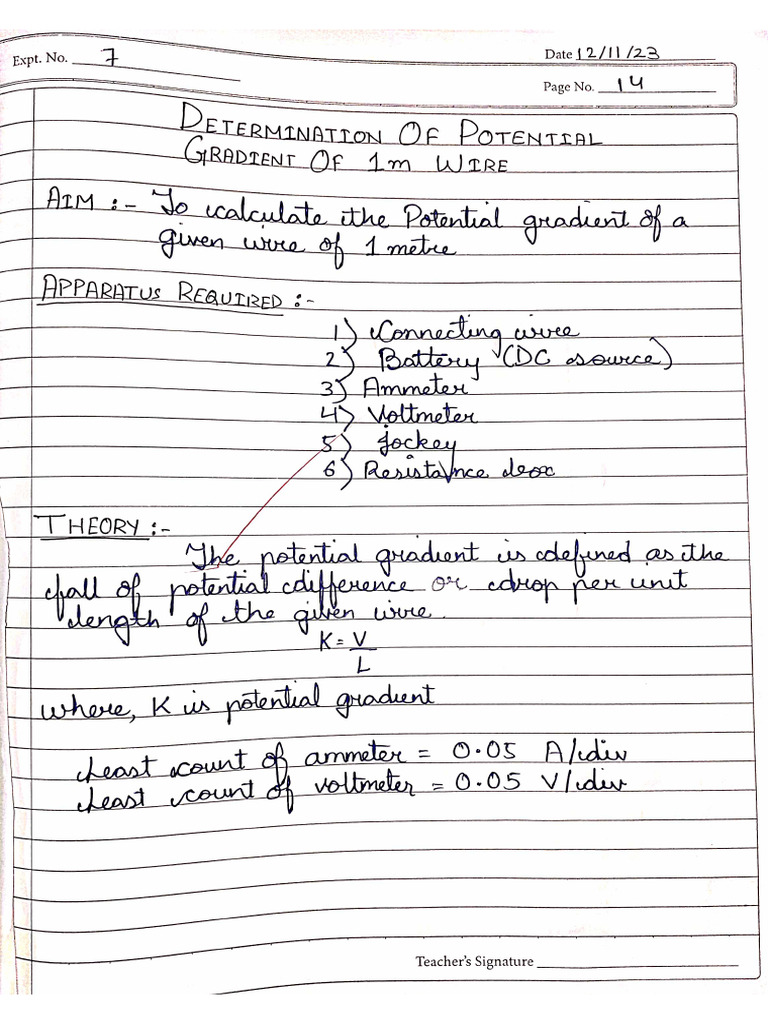 Expt. No. 7
Date 12/11/23
Page No. 14
DETERMINATION OF POTENTIAL
GRADIENT OF 1m WIRE
AIM :- To calculate the Potential gradient of a
given wire of 1 metre
APPARATUS REQUIRED :-
1) Connecting wire
2) Battery (DC source)
3) Ammeter
4) Voltmeter
5) Jockey
6) Resistance box
THEORY :-
The potential gradient is defined as the
fall of potential difference or drop per unit
length of the given wire.
K = V
L
where, K is potential gradient
Least count of ammeter = 0.05 A/div
Least count of voltmeter = 0.05 V/div
Teacher's Signature